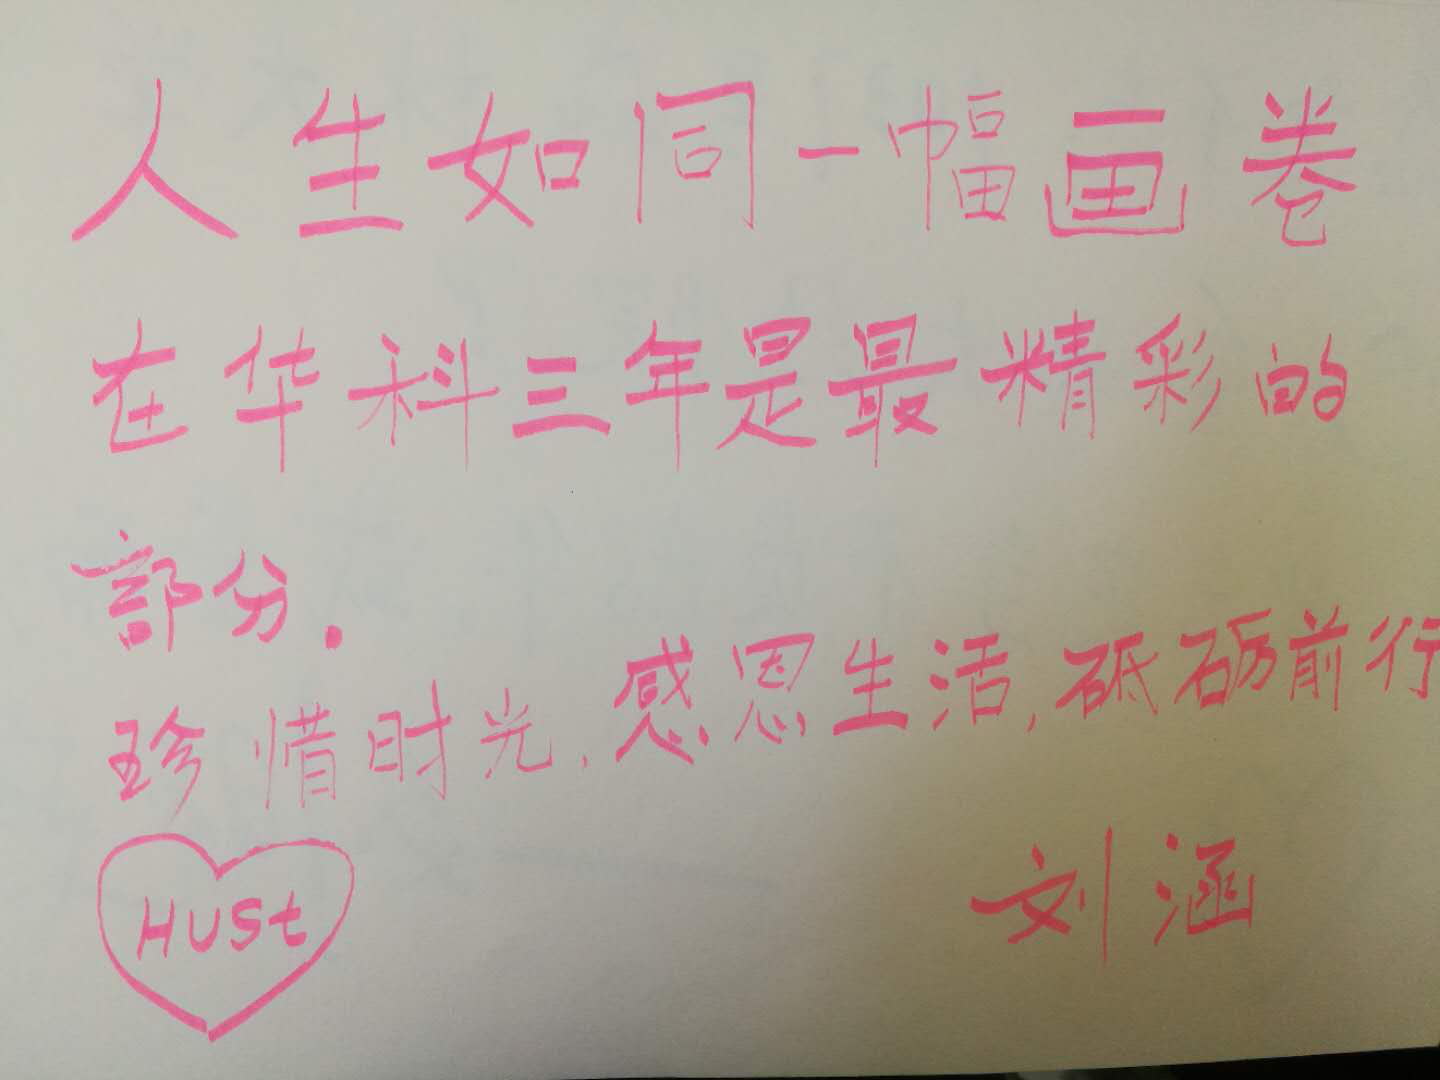 人生如同一幅画卷
在华科三年是最精彩的
部分.
珍惜时光,感恩生活,砥砺前行
HUSt
刘涵